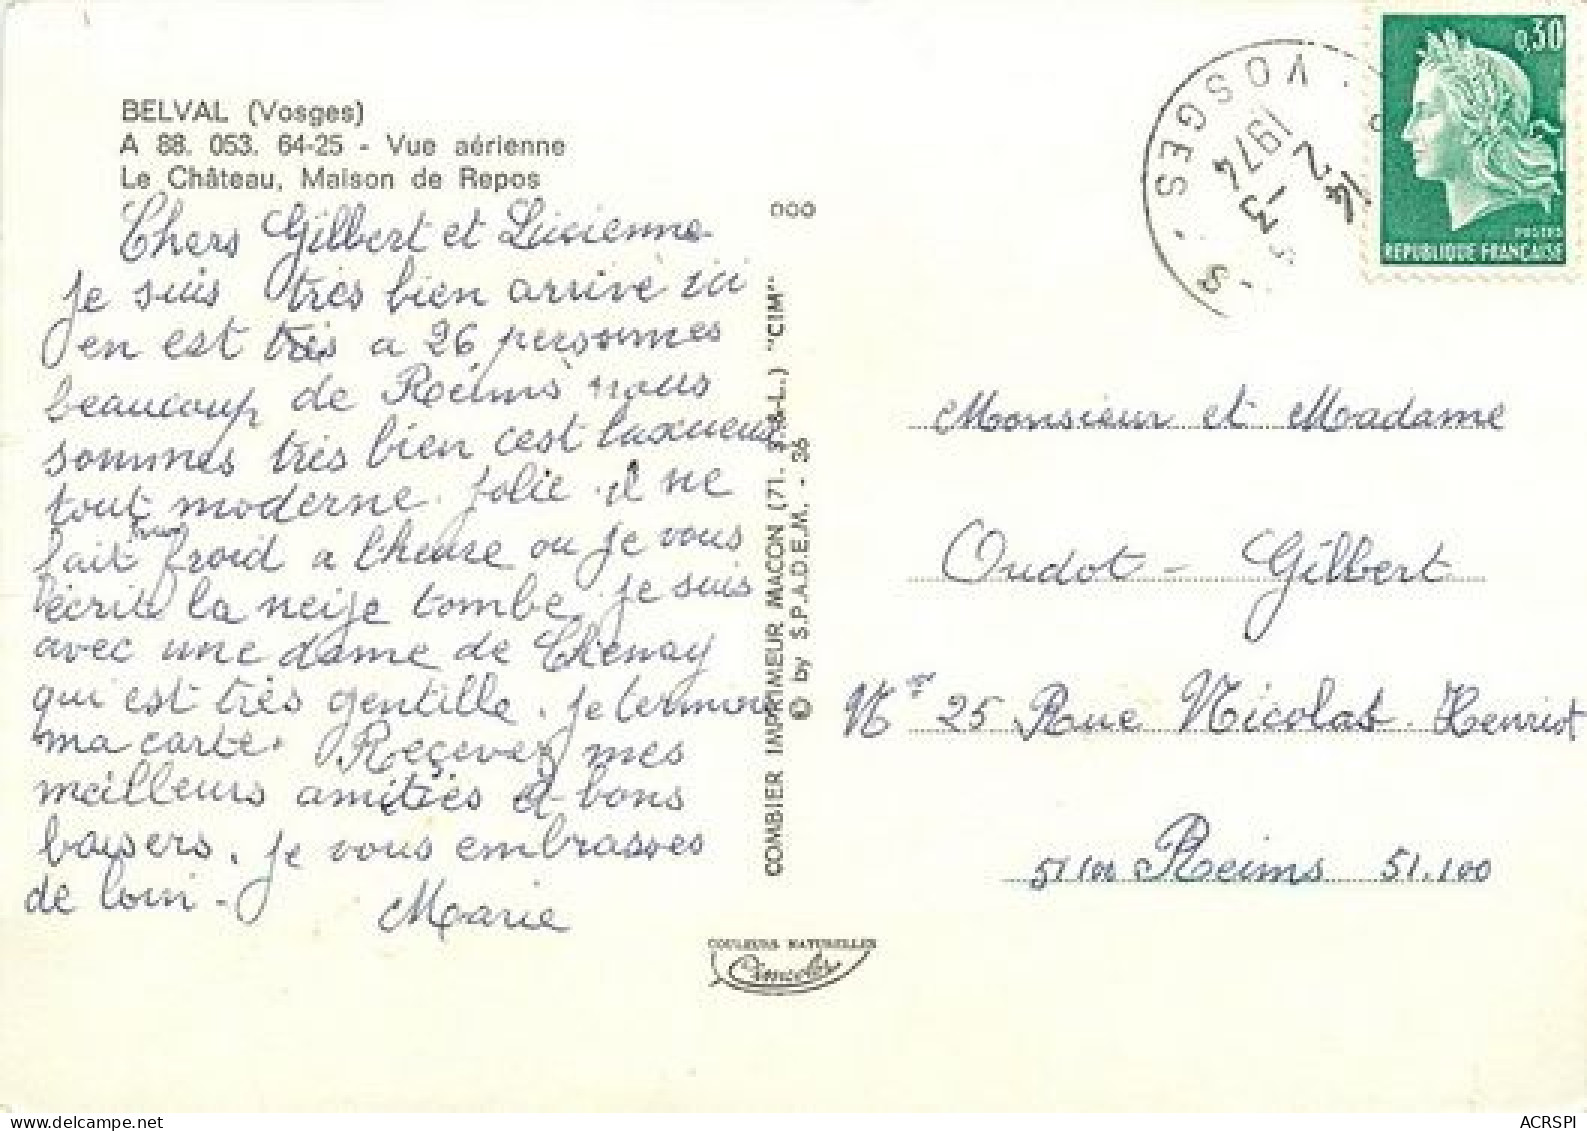 BELVAL (Vosges)
A 88. 053. 64-25 - Vue aérienne
Le Château, Maison de Repos
Chers Gilbert et Lucienne
je suis très bien arrivé ici
en est très a 26 personnes
beaucoup de Reims nous
sommes très bien cest luxueux
tout moderne. Jolie. il ne
fait froid a lheure ou je vous
écrit la neije tombe. je suis
avec une dame de Chenay
qui est très gentille. je termine
ma carte. Reçevez mes
meilleurs amitiés et bons
baisers. je vous embrasses
de loin -
Marie
000
COMBIER IMPRIMEUR MACON (71. S.-&-L.) "CIM"
© by S.P.A.D.E.M. - 36
COULEURS NATURELLES
Cimcolor
VOSGES
1974
0,30
POSTES
REPUBLIQUE FRANÇAISE
Monsieur et Madame
Oudot - Gilbert
25 Rue Nicolas Henriot
51100 Reims 51.100
delcampe.net
ACRSPI